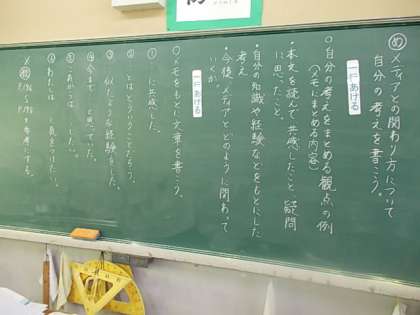 め メディアとの関わり方について
自分の考えを書こう。
一字あける
○自分の考えをまとめる観点の例
(メモにまとめる内容)
・本文を読んで共感したこと、疑問
に思ったこと。
・自分の知識や経験などをもとにした
考え
・今後、メディアとどのように関わって
いくか。
一字あける
○メモをもとに文章を書こう。
① に共感した。
② とはどういうことだろう。
③ 似たような経験をした。
④ 今まで 思っていた。
⑤ これからは したい。
⑥ わたしは 気をつけたい。